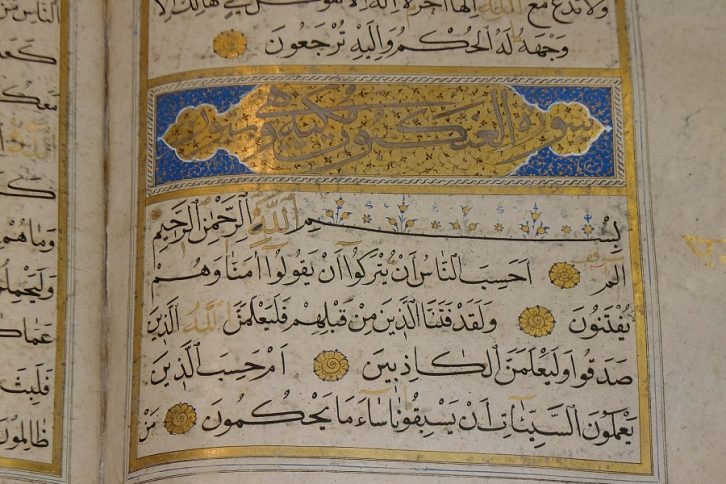 ولا تدع مع الله الها اخر لا اله الا هو كل شيء هالك الا
وجهه له الحكم واليه ترجعون
سورة العنكبوت مكية وهي
بسم الله الرحمن الرحيم
الم احسب الناس ان يتركوا ان يقولوا امنا وهم
يفتنون ولقد فتنا الذين من قبلهم فليعلمن الله الذين
صدقوا وليعلمن الكاذبين ام حسب الذين
يعملون السيئات ان يسبقونا ساء ما يحكمون من